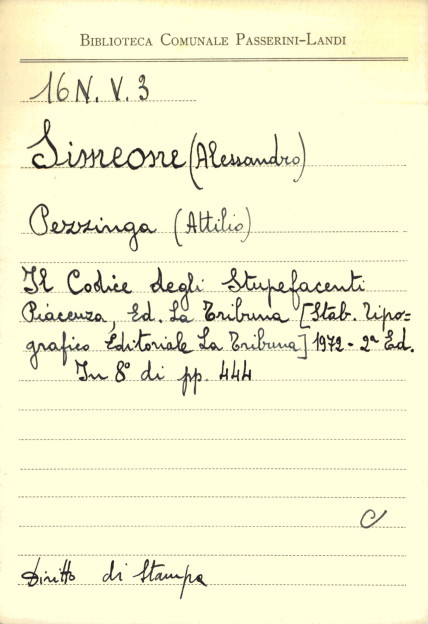 BIBLIOTECA COMUNALE PASSERINI-LANDI
16 N. V. 3
Simeone (Alessandro)
Pezzinga (Attilio)
Il Codice degli Stupefacenti
Piacenza, Ed. La Tribuna [Stab. Tipo-
grafico Editoriale La Tribuna] 1972 - 2ª Ed.
In 8° di pp. 444
C
Diritto di Stampa